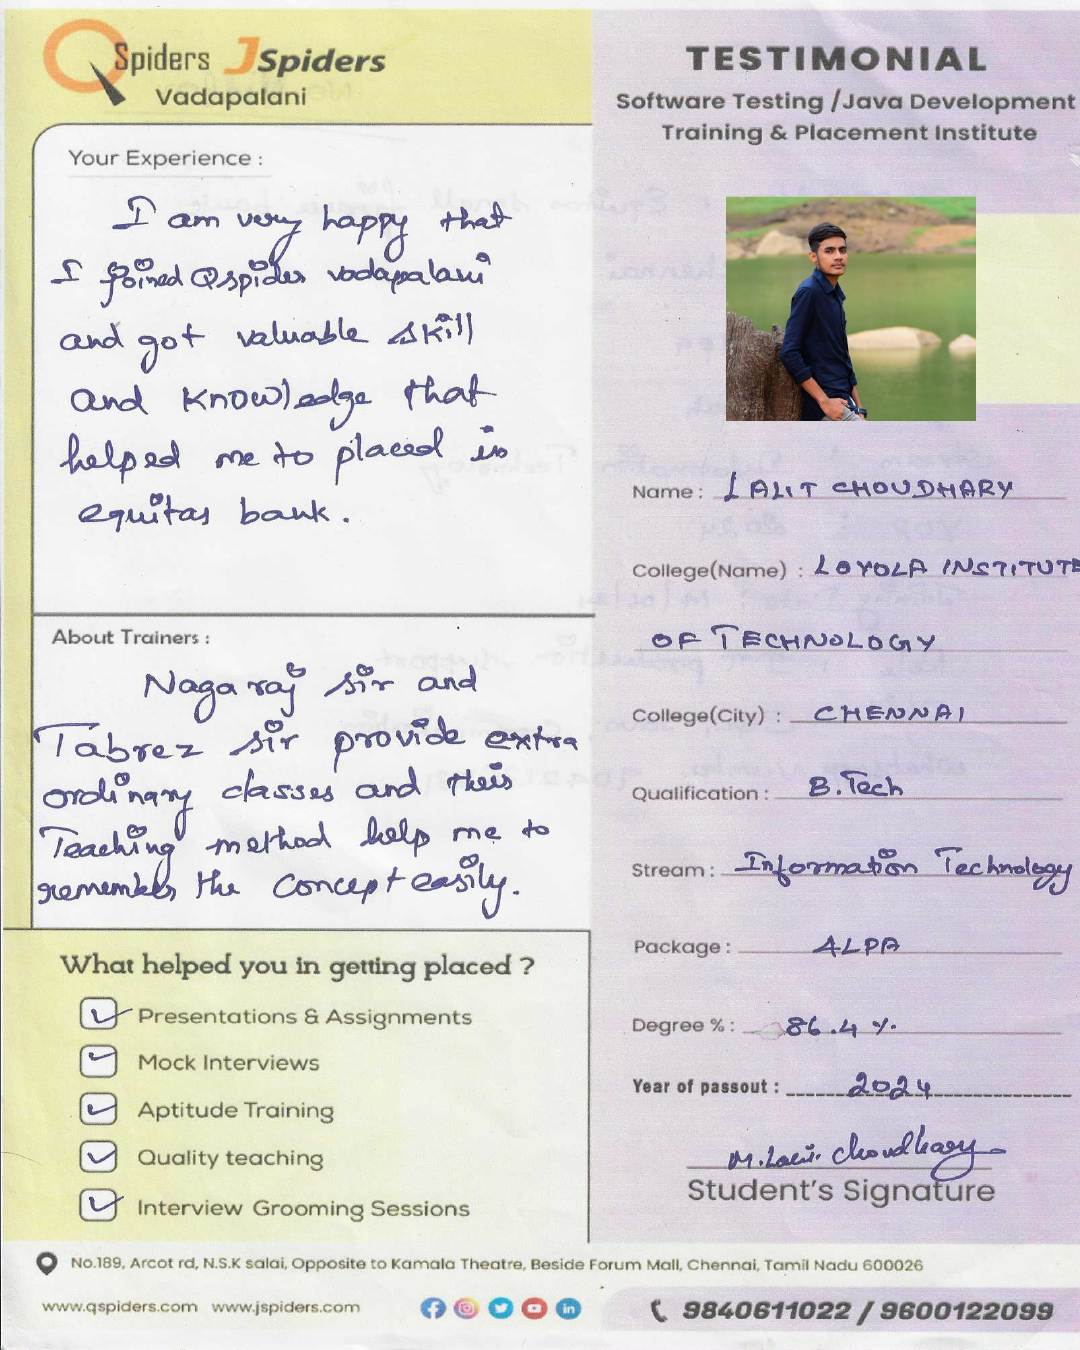 QSpiders JSpiders
Vadapalani
TESTIMONIAL
Software Testing /Java Development
Training & Placement Institute
Your Experience :
I am very happy that
I joined Qspider vadapalani
and got valuable skill
and knowledge that
helped me to placed in
equitas bank.
About Trainers :
Nagaraj sir and
Tabrez sir provide extra
ordinary classes and their
Teaching method help me to
remember the concept easily.
What helped you in getting placed ?
Presentations & Assignments
Mock Interviews
Aptitude Training
Quality teaching
Interview Grooming Sessions
Name : LALIT CHOUDHARY
College(Name) : LOYOLA INSTITUTE
OF TECHNOLOGY
College(City) : CHENNAI
Qualification : B.Tech
Stream : Information Technology
Package : 4LPA
Degree % : 86.4 %
Year of passout : 2024
M. Lalit. Choudhary
Student's Signature
No.189, Arcot rd, N.S.K salai, Opposite to Kamala Theatre, Beside Forum Mall, Chennai, Tamil Nadu 600026
www.qspiders.com www.jspiders.com
9840611022 / 9600122099